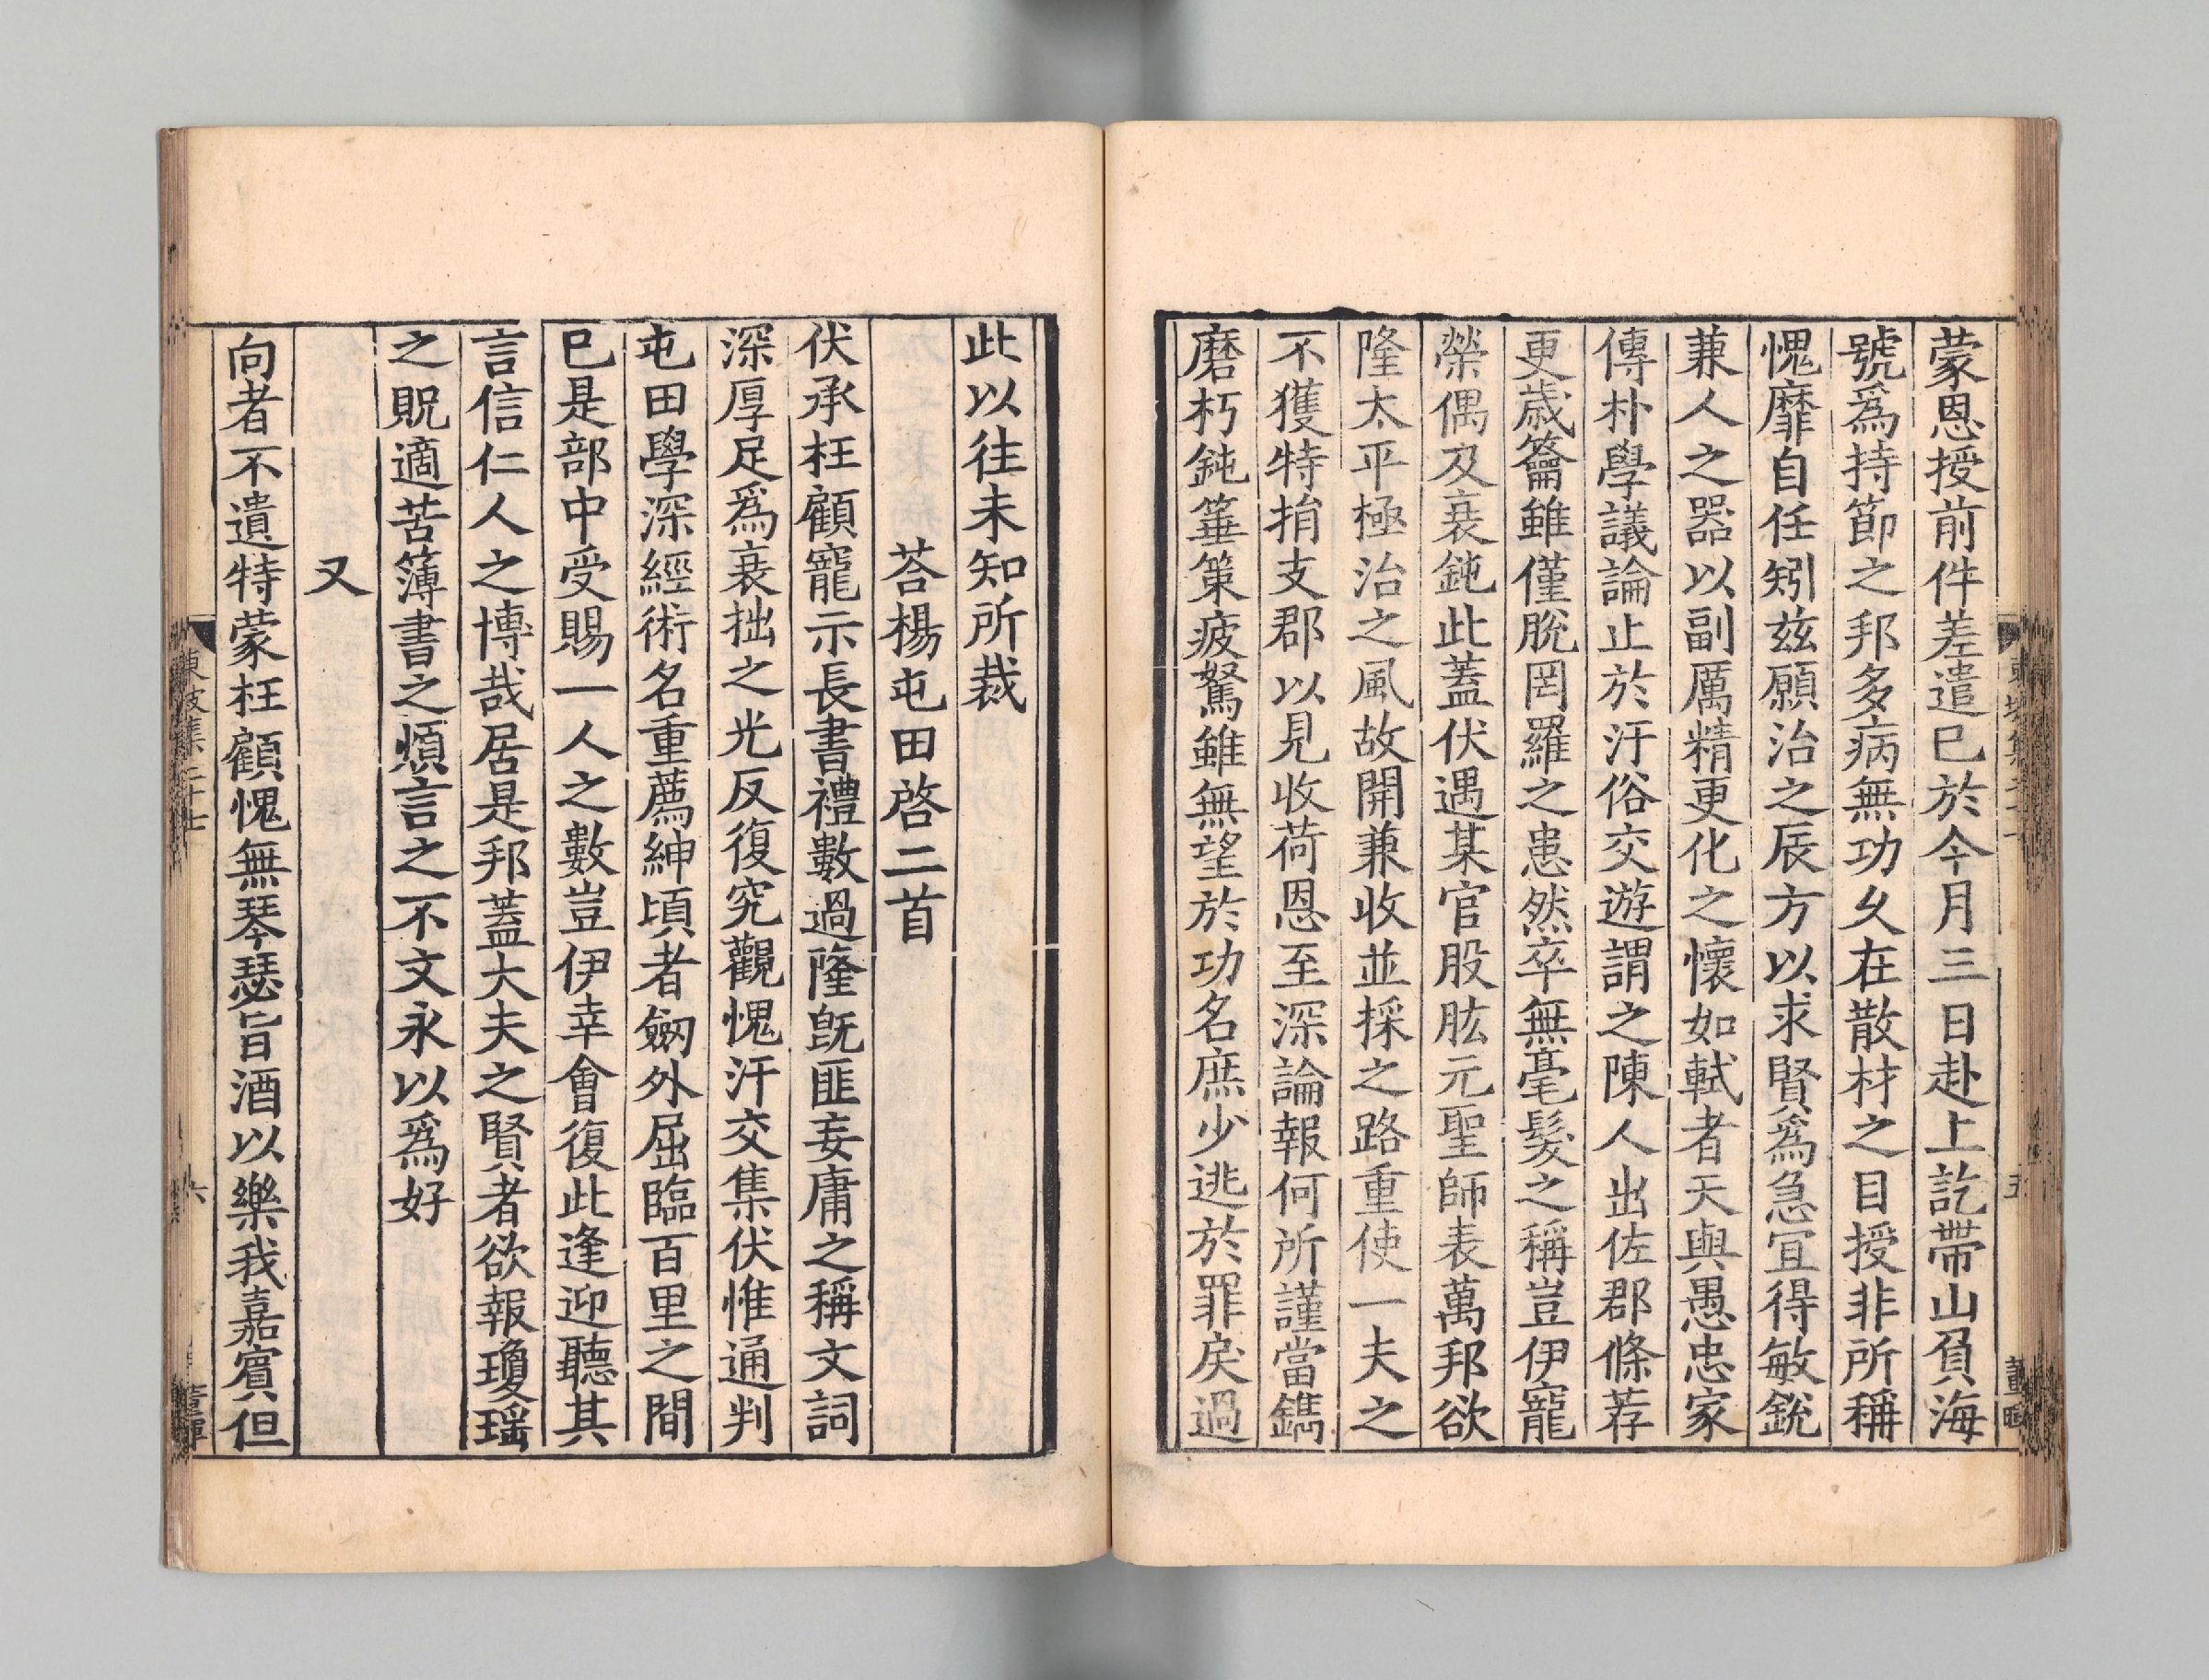 蒙恩授前件差遣已於今月三日赴上訖帶山負海
號爲持節之邦多病無功乆在散材之目授非所稱
愧靡自任矧兹願治之辰方以求賢爲急宜得敏銳
兼人之器以副厲精更化之懷如軾者天與愚忠家
傳朴學議論止於汙俗交遊謂之陳人出佐郡條荐
更歲籥雖僅脫罔羅之患然卒無毫髮之稱豈伊寵
榮偶及衰鈍此蓋伏遇某官股肱元聖師表萬邦欲
隆太平極治之風故開兼收並採之路重使一夫之
不獲特捐支郡以見收荷恩至深論報何所謹當鐫
磨朽鈍箠策疲駑雖無望於功名庶少逃於罪戾過
此以往未知所裁
荅楊屯田啓二首
伏承枉顧寵示長書禮數過隆旣匪妄庸之稱文詞
深厚足爲衰拙之光反復究觀愧汗交集伏惟通判
屯田學深經術名重薦紳頃者劒外屈臨百里之間
已是部中受賜一人之數豈伊幸會復此逢迎聽其
言信仁人之博哉居是邦蓋大夫之賢者欲報瓊瑶
之貺適苦簿書之煩言之不文永以爲好
又
向者不遺特蒙枉顧愧無琴瑟旨酒以樂我嘉賓但
東坡集二十七
六